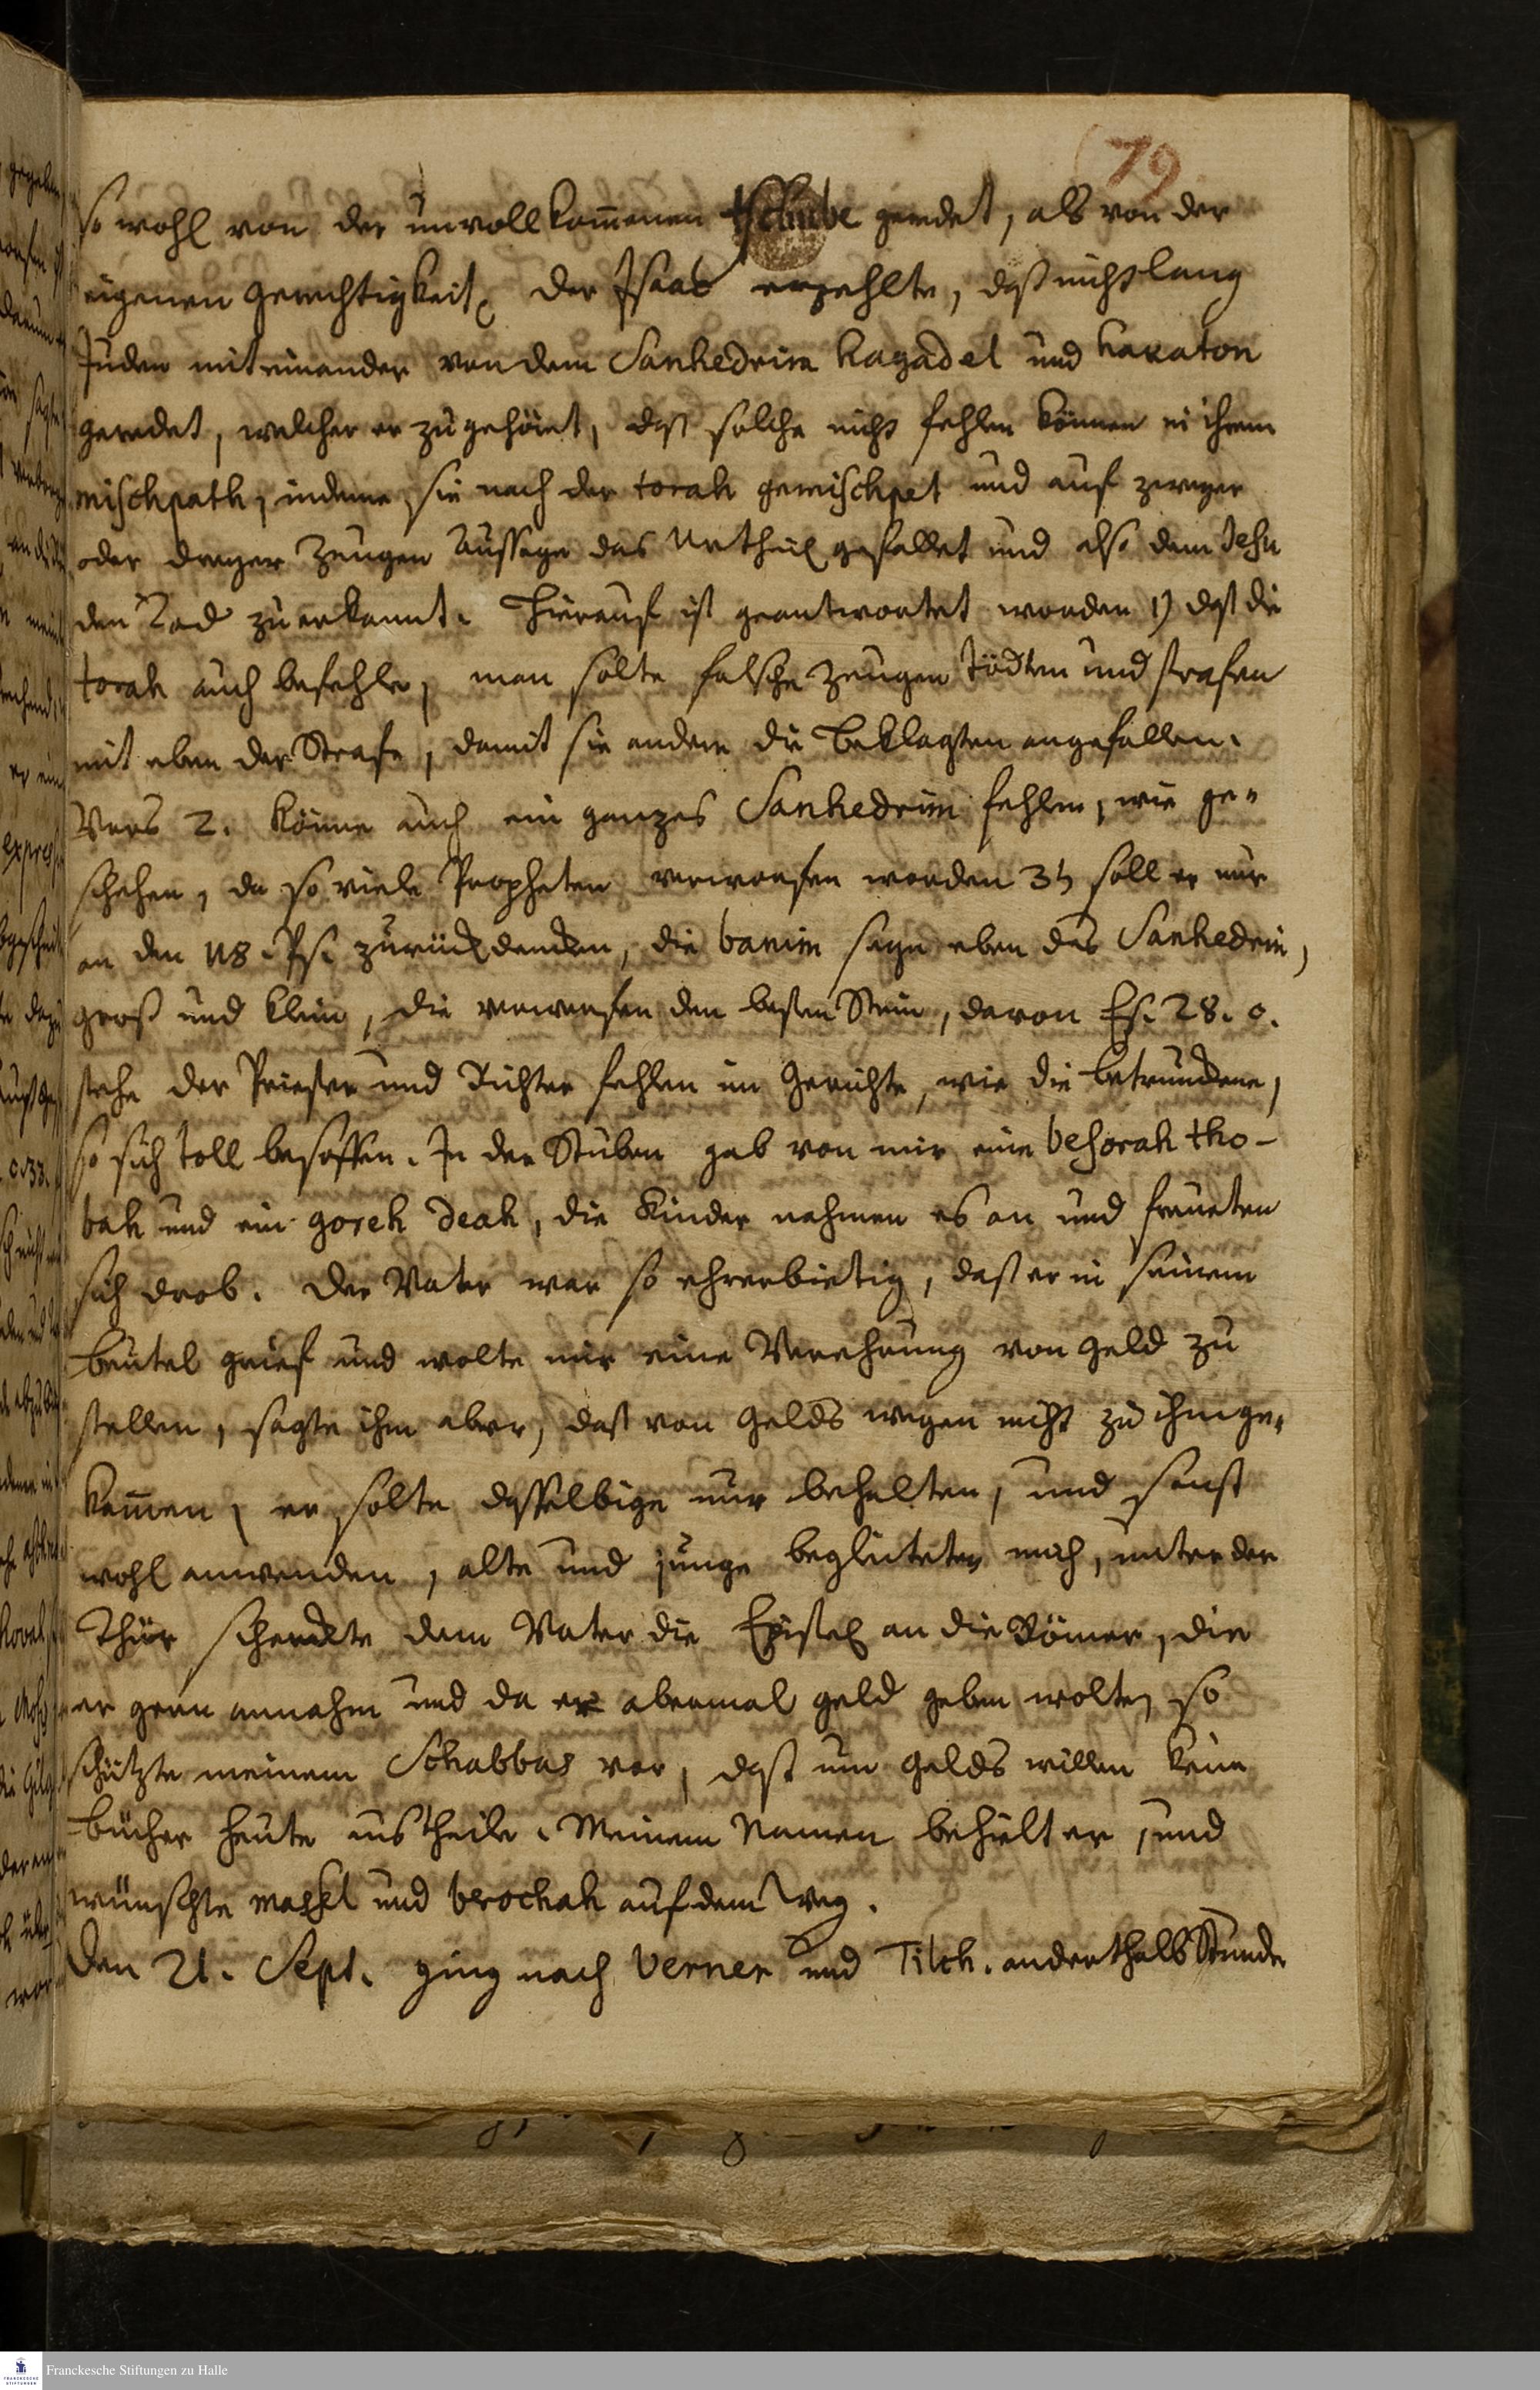 79
so wohl von der unvollkom̅enen tschube geredet, als von der
eigenen Gerechtigkeit. Der Isaac erzehlte, daß nicht lang
Juden miteinander von dem Sanhedrim hagadol und hakaton
geredet, welcher er zugehöret, daß solche nicht fehlen können in ihrem
mischpath, indeme sie nach der torah gemischpet und auf zweyer
oder dreyer Zeugen Aussage das Urtheil gefället und also dem Jesu
den Tod zuerkannt. Hierauf ist geantwortet worden 1) daß die
torah auch befehle, man solte falsche Zeugen tödten und strafen
mit eben der Strafe, damit sie andere die Beklagten angefallen.
Vors 2. könne auch ein ganzes Sanhedrim fehlen, wie ge-
schehen, da so viele Propheten verworfen worden 3) soll er nur
an den 118. Ps. zurück dencken, die banim seyn eben das Sanhedrin,
groß und klein, die verworfen den besten Stein, davon Es. 28. c.
stehe der Priester und Richter fehlen im Gerichte, wie die betrunckene,
so sich toll besoffen. In der Stuben gab von mir eine besorah tho-
bah und ein goreh deah, die Kinder nahmen es an und freueten
sich drob. Der Vater war so ehrerbietig, daß er in seinem
Beutel grief und wolte mir eine Verehrung von Geld zu
stellen, sagte ihm aber, daß von Gelds wegen nicht zu ihm ge-
kom̅en, er solte dasselbige nur behalten, und sonst
wohl anwenden, alte und junge begleiteten mich, unter der
Thür schenckte dem Vater die Epistel an die Römer, die
er gern annahm und da er abermal geld geben wolte, so
schützte meinem Schabbas vor, daß um Gelds willen keine
Bücher heute austheile. Meinem Namen behielt er, und
wünschte massel und brochah auf dem Weg.
Den 21. Sept. ging nach Verner und Tilch. anderthalb Stunde
Franckesche Stiftungen zu Halle